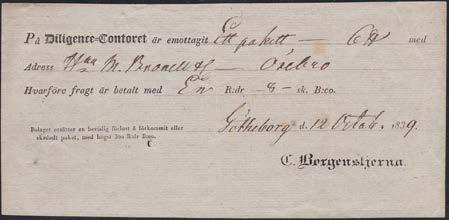 På Diligence-Contoret är emottagit Ett pakett — 6 ℔ med
Adress M. — Örebro
Hvarföre fragt är betalt med En R:dr 8 – sk. B:co.
Bolaget ersätter en bevislig förlust å förkommit eller
skadadt paket, med högst 300 R:dr B:co.
Götheborg d. 12 Octob. 1839.
C. Bergenstjerna.